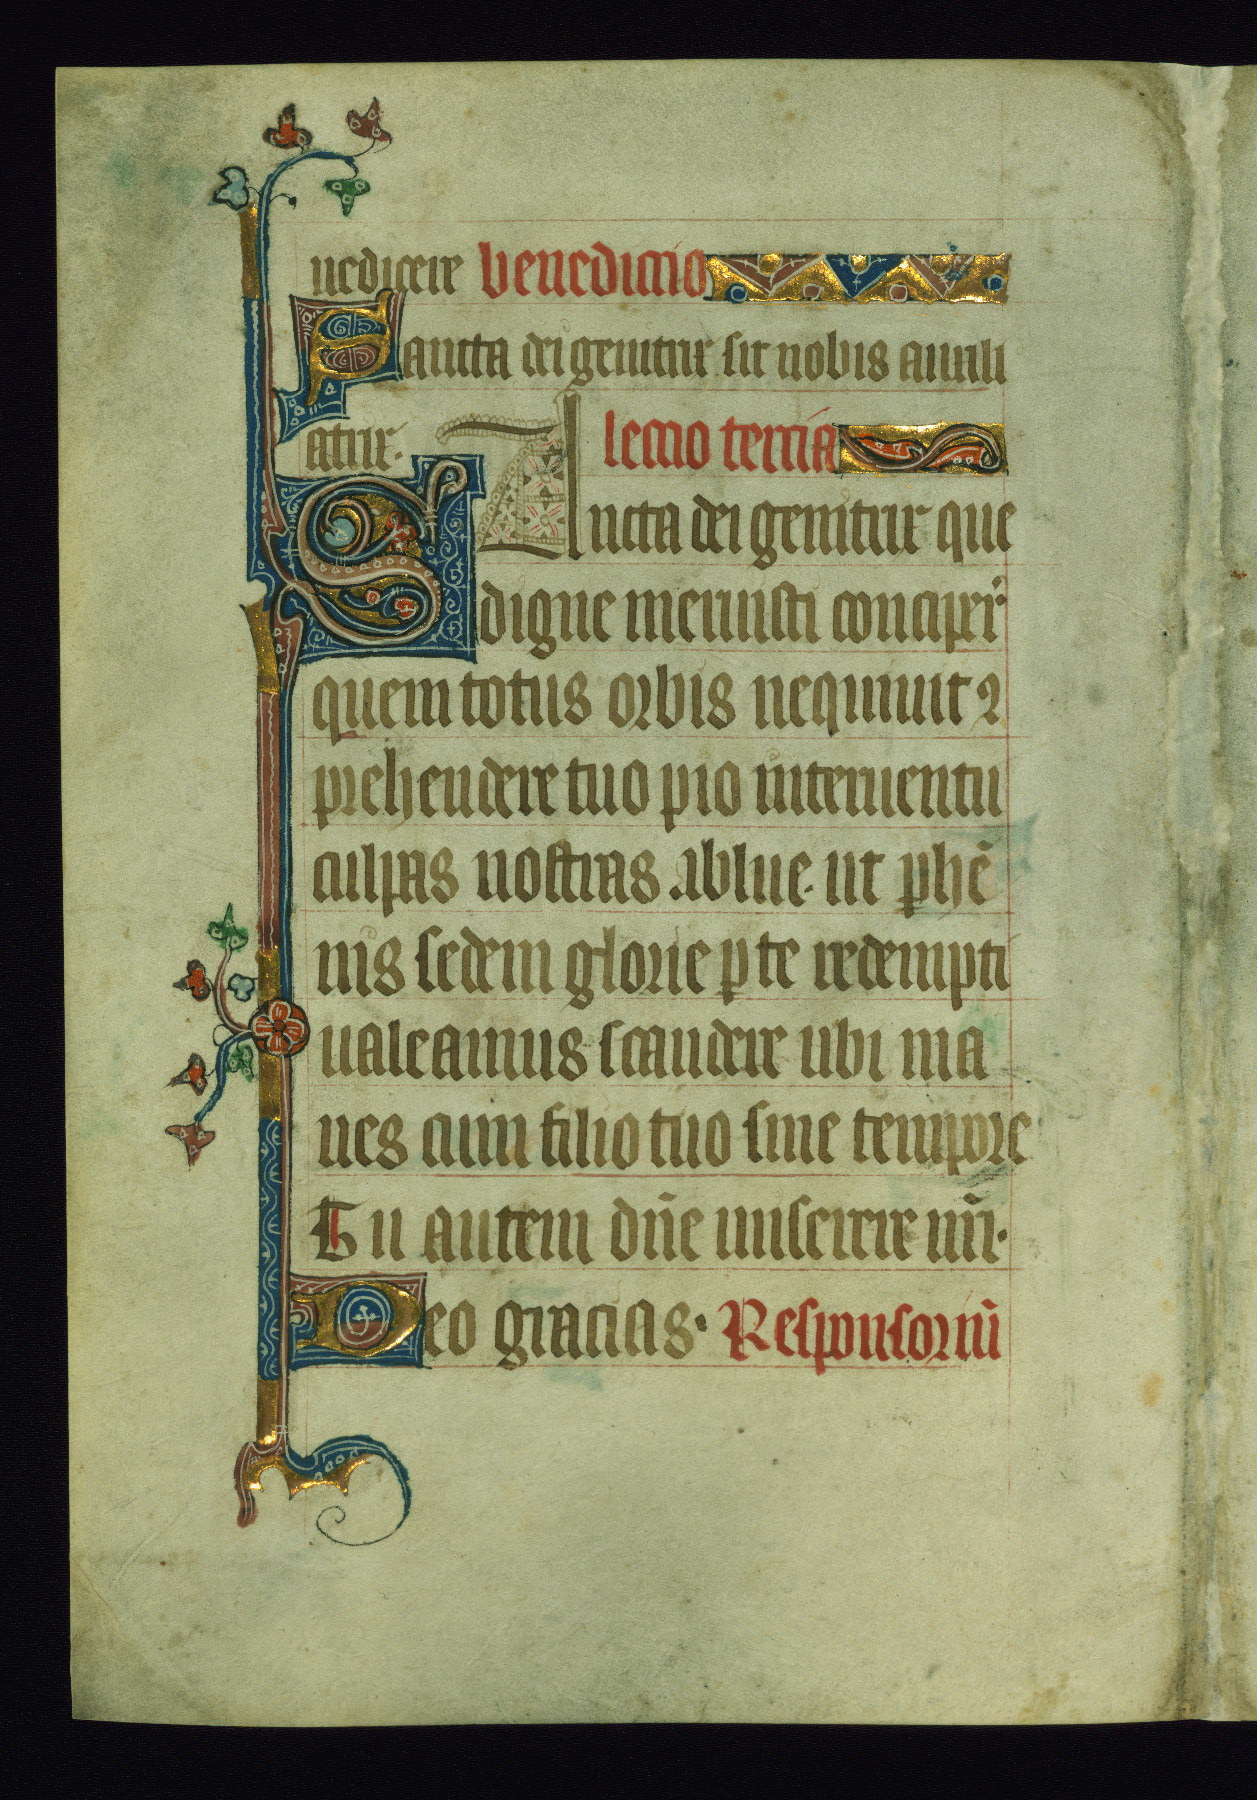 nedicere benedictio
Sancta dei genitrix sit nobis auxili
atrix. lectio tertia
SAncta dei genitrix que
digne meruisti concipere
quem totus orbis nequiuit ꝯ
prehendere tuo pio interuentu
culpas nostras ablue. ut phē
nis sedem glorie ꝑ te redempti
ualeamus scandere ubi ma
nes cum filio tuo sine tempore
Tu autem dñe miserere nrī.
Deo gracias. Responsoriū